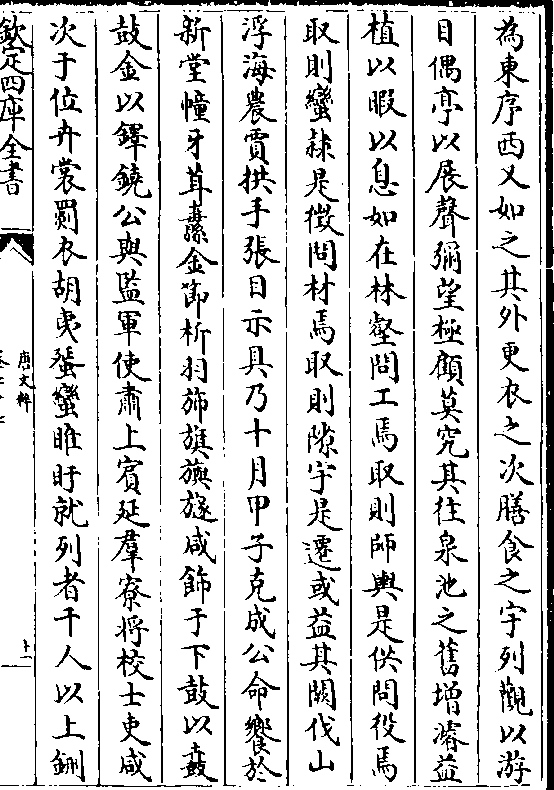 為東序西又如之其外更衣之次膳食之宇列觀以游
目偶亭以展聲彌望極顧莫究其往泉池之舊增濬益
植以暇以息如在林壑問工焉取則師輿是供問役焉
取則蠻隸是徵問材焉取則隙宇是遷或益其闕伐山
浮海農賈拱手張目示具乃十月甲子克成公命饗於
新堂幢牙茸纛金節析羽旂旗旟旞咸飾于下鼓以鼖
鼓金以鐸鐃公與監軍使肅上賓延羣寮將校士吏咸
次于位卉裳罽衣胡夷蜑蠻睢盱就列者千人以上鉶
欽定四庫全書
唐文粹
十一